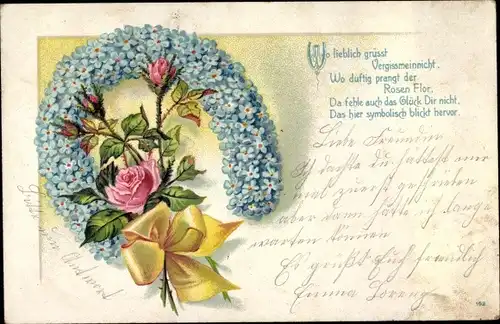 Wo lieblich grüsst
Vergissmeinnicht.
Wo duftig prangt der
Rosen Flor,
Da fehle auch das Glück Dir nicht,
Das hier symbolisch blickt hervor.
Liebe Freundin
Ich dachte du hättest mir
mal zuerst geschrieben
aber dann hätte ich lange
warten können
Es grüßt Euch freundlich
Emma Lorenz